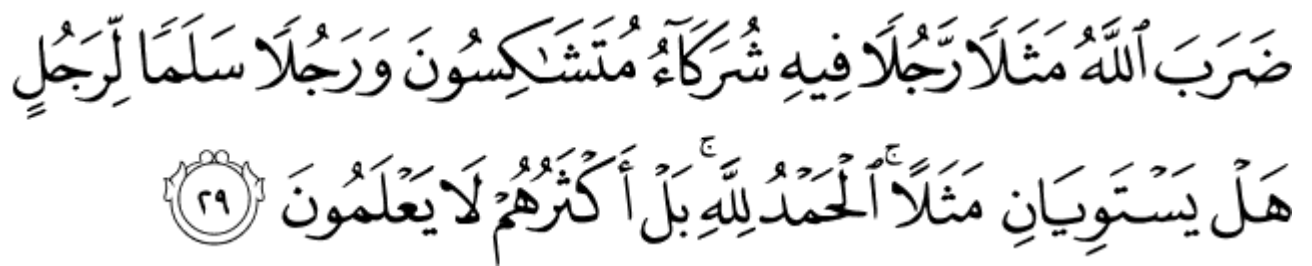 ضَرَبَ ٱللَّهُ مَثَلًا رَّجُلًا فِيهِ شُرَكَآءُ مُتَشَـٰكِسُونَ وَرَجُلًا سَلَمًا لِّرَجُلٍ
هَلْ يَسْتَوِيَانِ مَثَلًا ۚ ٱلْحَمْدُ لِلَّهِ ۚ بَلْ أَكْثَرُهُمْ لَا يَعْلَمُونَ ٢٩